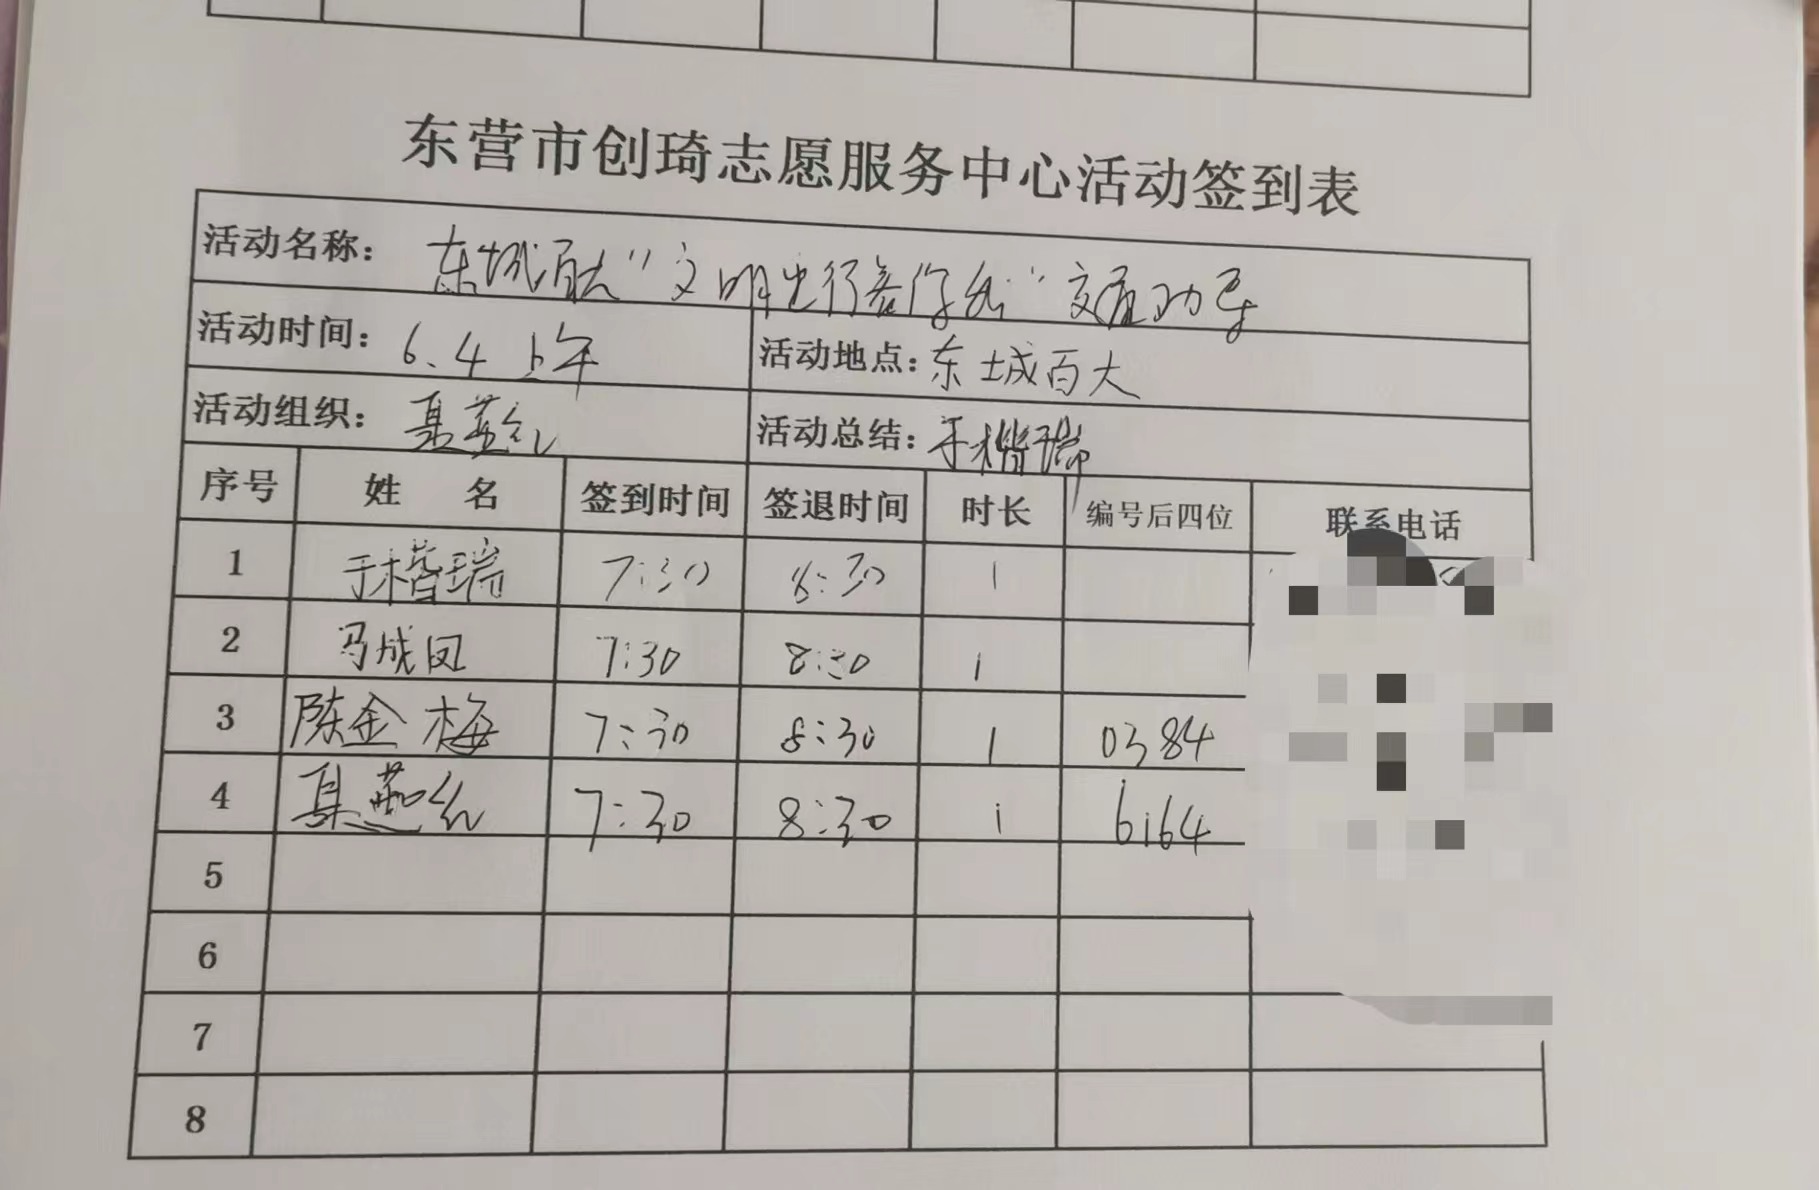 东营市创琦志愿服务中心活动签到表
活动名称: 东城百大"文明出行 你 "交通劝导
活动时间: 6.4 上午 活动地点: 东城百大
活动组织: 聂燕红 活动总结: 于楷瑞
序号 姓 名 签到时间 签退时间 时长 编号后四位 联系电话
1 于楷瑞 7:30 8:30 1
2 马成凤 7:30 8:30 1
3 陈金梅 7:30 8:30 1 0384
4 聂燕红 7:30 8:30 1 6164
5
6
7
8